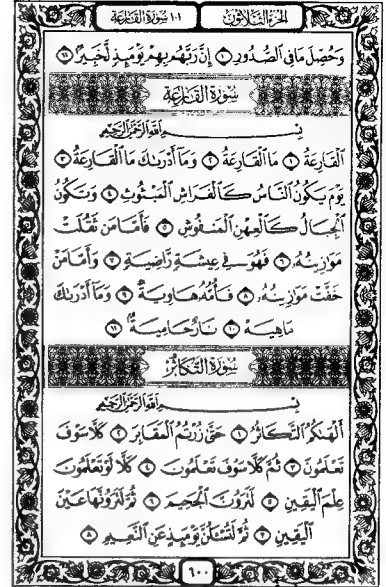 الجزء الثلاثون ١٠١ سورة القارعة
وَحُصِّلَ مَا فِي ٱلصُّدُورِ ۝١٠ إِنَّ رَبَّهُم بِهِمْ يَوْمَئِذٍ لَّخَبِيرٌۢ ۝١١
سُورَةُ القَارِعَةِ
بِسْمِ ٱللَّهِ ٱلرَّحْمَٰنِ ٱلرَّحِيمِ
ٱلْقَارِعَةُ ۝١ مَا ٱلْقَارِعَةُ ۝٢ وَمَآ أَدْرَىٰكَ مَا ٱلْقَارِعَةُ ۝٣
يَوْمَ يَكُونُ ٱلنَّاسُ كَٱلْفَرَاشِ ٱلْمَبْثُوثِ ۝٤ وَتَكُونُ
ٱلْجِبَالُ كَٱلْعِهْنِ ٱلْمَنفُوشِ ۝٥ فَأَمَّا مَن ثَقُلَتْ
مَوَٰزِينُهُۥ ۝٦ فَهُوَ فِي عِيشَةٍ رَّاضِيَةٍ ۝٧ وَأَمَّا مَنْ
خَفَّتْ مَوَٰزِينُهُۥ ۝٨ فَأُمُّهُۥ هَاوِيَةٌ ۝٩ وَمَآ أَدْرَىٰكَ
مَا هِيَهْ ۝١٠ نَارٌ حَامِيَةٌۢ ۝١١
سُورَةُ التَّكَاثُرِ
بِسْمِ ٱللَّهِ ٱلرَّحْمَٰنِ ٱلرَّحِيمِ
أَلْهَىٰكُمُ ٱلتَّكَاثُرُ ۝١ حَتَّىٰ زُرْتُمُ ٱلْمَقَابِرَ ۝٢ كَلَّا سَوْفَ
تَعْلَمُونَ ۝٣ ثُمَّ كَلَّا سَوْفَ تَعْلَمُونَ ۝٤ كَلَّا لَوْ تَعْلَمُونَ
عِلْمَ ٱلْيَقِينِ ۝٥ لَتَرَوُنَّ ٱلْجَحِيمَ ۝٦ ثُمَّ لَتَرَوُنَّهَا عَيْنَ
ٱلْيَقِينِ ۝٧ ثُمَّ لَتُسْـَٔلُنَّ يَوْمَئِذٍ عَنِ ٱلنَّعِيمِ ۝٨
٦٠٠